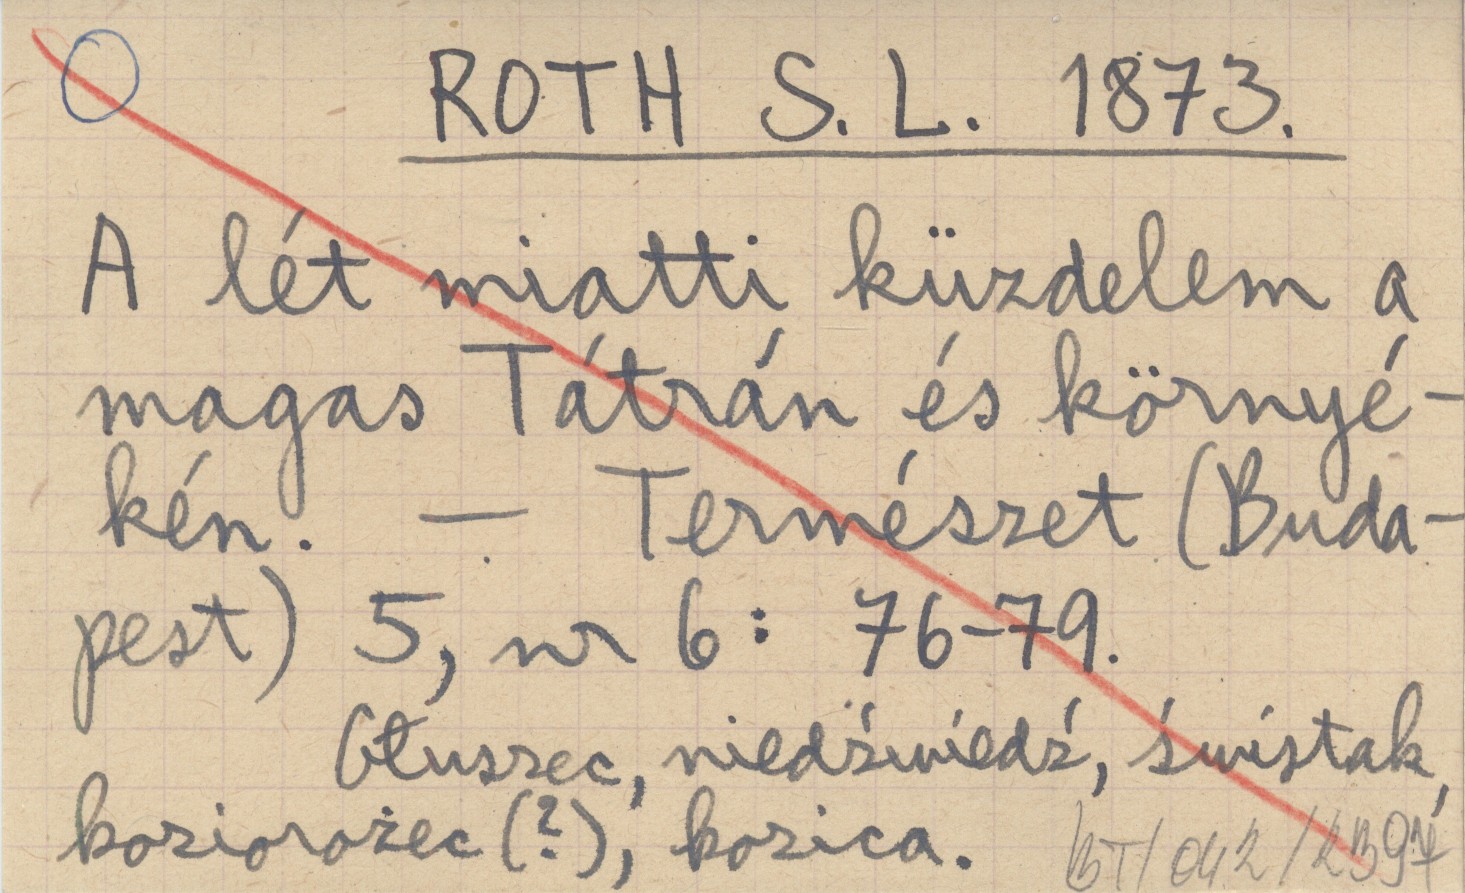 ROTH S. L. 1873.
A lét miatti küzdelem a
magas Tátrán és környé-
kén. — Természet (Buda-
pest) 5, nr 6: 76-79.
Głuszec, niedźwiedź, świstak,
koziorożec (?), kozica.
BT/042/2397